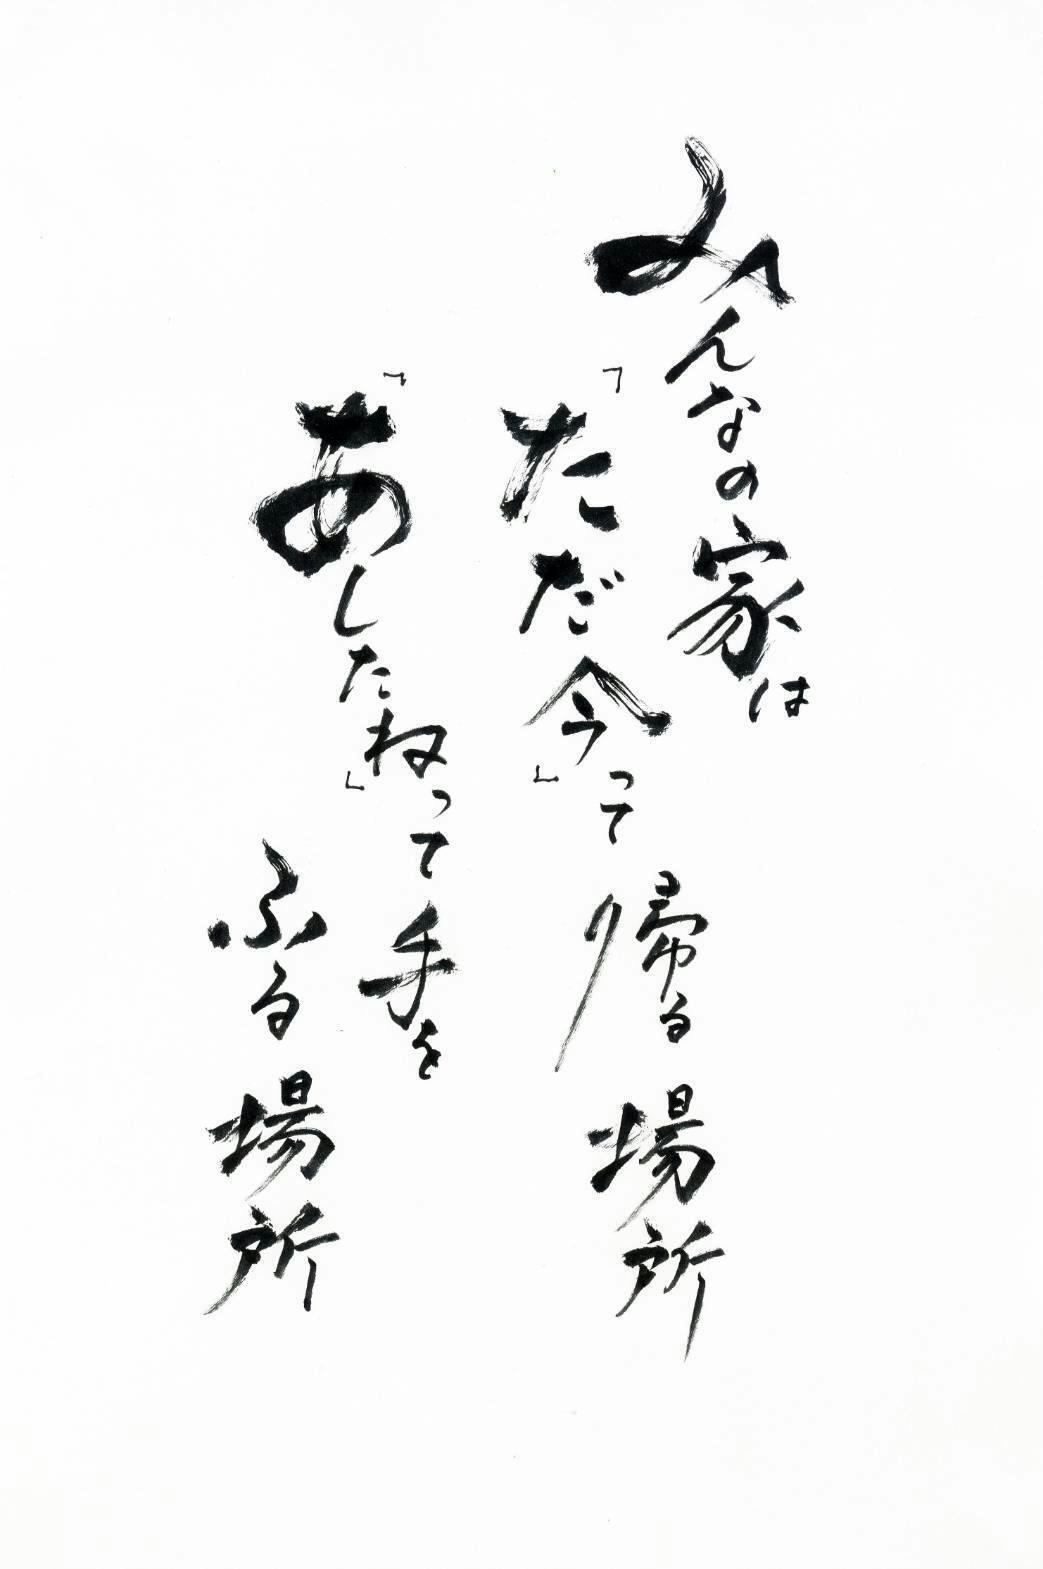 みんなの家は
「ただ今」って
帰る場所
「あしたね」って手を
ふる場所